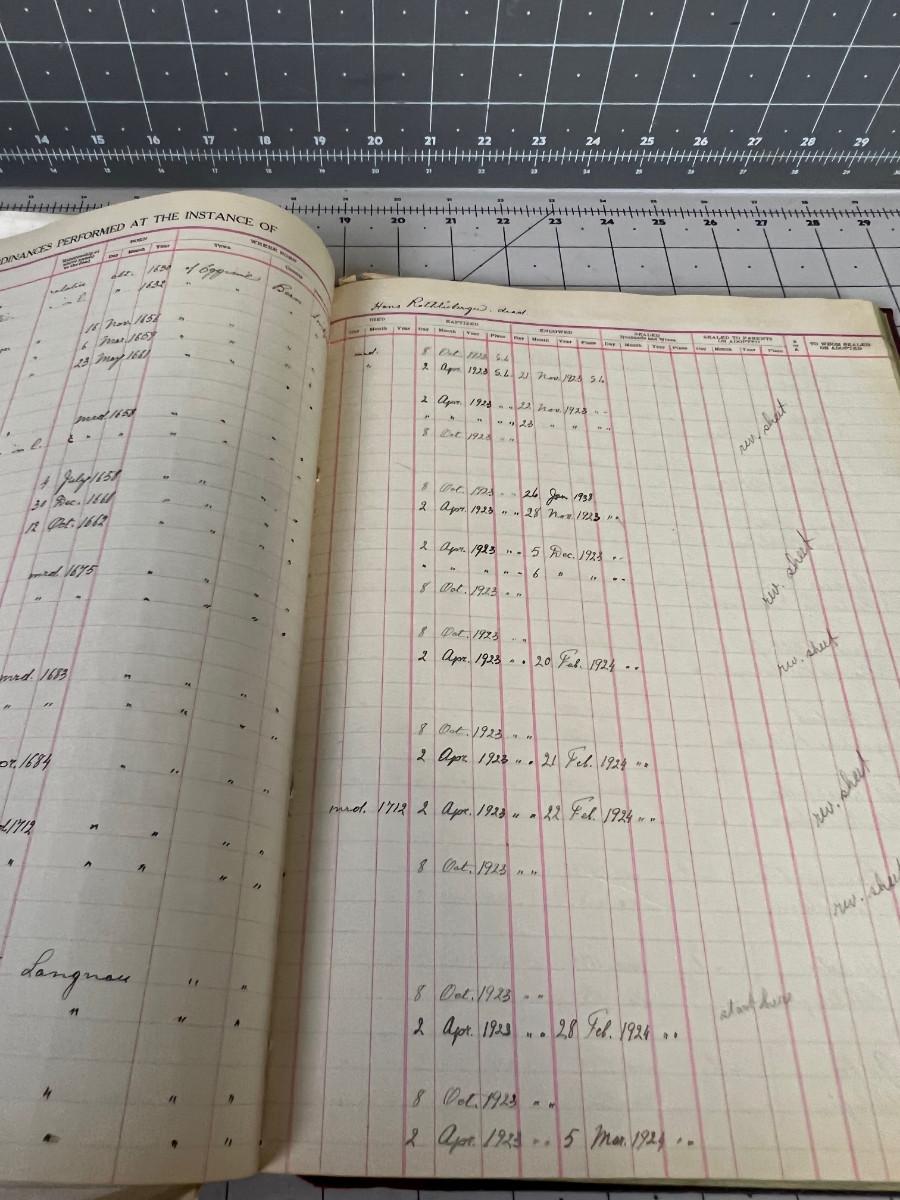 14 15 16 17 18 19 20 21 22 23 24 25 26 27 28 29
19 20 21 22 23 24 25 26 27 28
DINANCES PERFORMED AT THE INSTANCE OF
BORN
WHERE BORN
Day Month Year Town
relative abt. 1630 of Eggiwil Bern
" i. l. " 1632 " "
16 Nov. 1656 " "
6 Mar. 1659 " "
23 May 1661 " "
mrd. 1658 "
" i. l. " " " "
4 July 1658 " "
30 Dec. 1660 " "
12 Oct. 1662 " "
mrd. 1675 " "
" " " "
mrd. 1683 " "
" " " "
1684 " "
1712 " "
" " "
Langnau " "
" " "
" " "
" " "
Hans Rothlisberger, dead
DIED BAPTIZED ENDOWED SEALED Husbands and Wives SEALED TO PARENTS OR ADOPTED TO WHOM SEALED OR ADOPTED
Day Month Year Day Month Year Place Day Month Year Place Day Month Year Place Day Month Year Place
8 Oct. 1923 S.L.
" 2 Apr. 1923 S.L. 21 Nov. 1923 S.L.
2 Apr. 1923 " " 22 Nov. 1923 " "
" " " " " 23 " " " "
8 Oct. 1923 " "
rev. sheet
8 Oct. 1923 " " 26 Jan 1938
2 Apr. 1923 " " 28 Nov. 1923 " "
2 Apr. 1923 " " 5 Dec. 1923 " "
" " " " " 6 " " " "
8 Oct. 1923 " "
rev. sheet
8 Oct. 1923 " "
2 Apr. 1923 " " 20 Feb. 1924 " "
rev. sheet
8 Oct. 1923 " "
2 Apr. 1923 " " 21 Feb. 1924 " "
mrd. 1712 2 Apr. 1923 " " 22 Feb. 1924 " "
rev. sheet
8 Oct. 1923 " "
rev. sheet
8 Oct. 1923 " "
start here
2 Apr. 1923 " " 28 Feb. 1924 " "
8 Oct. 1923 " "
2 Apr. 1923 " " 5 Mar. 1924 " "